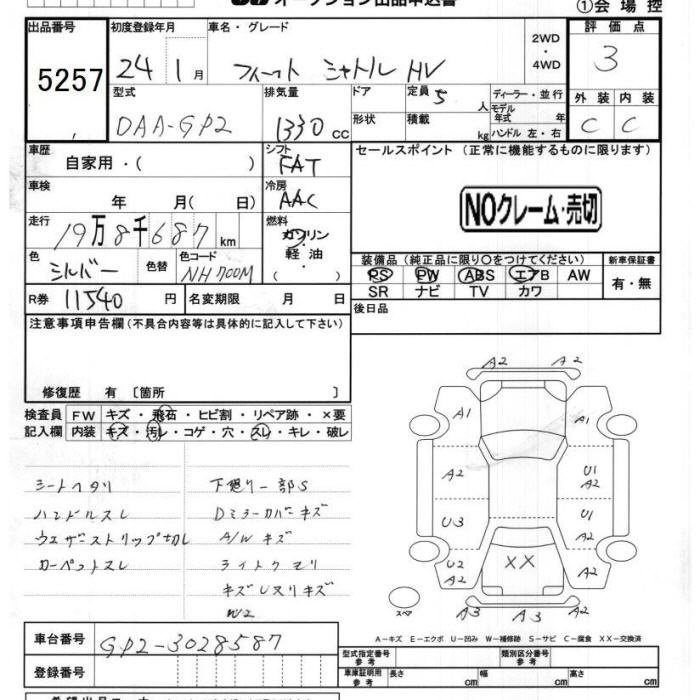 オークション出品申込書
①会場控
出品番号 初度登録年月 車名・グレード 2WD・4WD 評価点
5257 24 1月 フィット シャトル HV 3
型式 排気量 ドア 定員 5人 ディーラー・並行 外装 内装
DAA-GP2 1330cc 形状 積載 kg モデル年式 年 ハンドル 左・右 C C
車歴 シフト セールスポイント (正常に機能するものに限ります)
自家用・( ) FAT
車検 冷房 AAC
年 月( 日)
NOクレーム・売切
走行 燃料 ガソリン
19万8千687km 軽油・( )
装備品 (純正品に限り○をつけてください) 新車保証書
色 シルバー 色替 色コード NH700M
PS PW ABS エアB AW 有・無
SR ナビ TV カワ
R券 11540円 名変期限 月 日 後日品
注意事項申告欄(不具合内容等は具体的に記入して下さい)
修復歴 有 〔箇所 〕
検査員 FW キズ・飛石・ヒビ割・リペア跡・×要
記入欄 内装 キズ・汚レ・コゲ・穴・スレ・キレ・破レ
シートヘタリ 下廻り一部S
ハンドルスレ Dミラーカバーキズ
ウェザストリップ切レ A/W キズ
カーペットスレ ライトクモリ
キズUスリキズ
W2
A2 A2
A1 A1
A2 U1 A2
U3 U1 A2
U2 A2 XX A2
スペア A3 A3 A2
A−キズ E−エクボ U−凹み W−補修跡 S−サビ C−腐食 XX−交換済
車台番号 GP2-3028587
型式指定番号 参考 類別区分番号 参考
登録番号 車庫証明用 参考 長さ cm 幅 cm 高さ cm